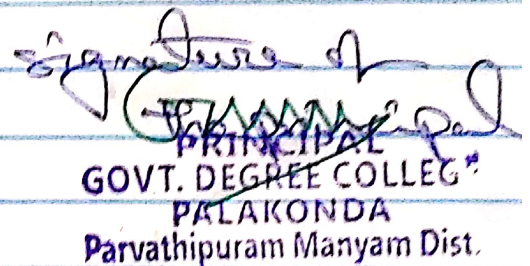 Signature of
the Principal
PRINCIPAL
GOVT. DEGREE COLLEG
PALAKONDA
Parvathipuram Manyam Dist.